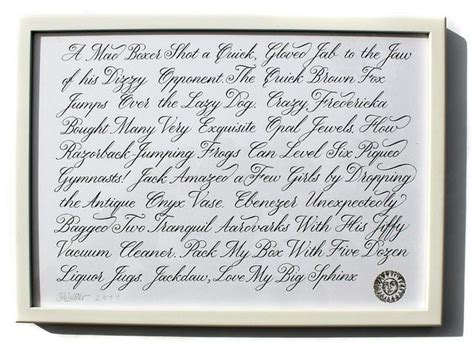 A Mad Boxer Shot a Quick, Gloved Jab to the Jaw
of his Dizzy Opponent. The Quick Brown Fox
Jumps Over the Lazy Dog. Crazy Fredericka
Bought Many Very Exquisite Opal Jewels. How
Razorback Jumping Frogs Can Level Six Piqued
Gymnasts! Jack Amazed a Few Girls by Dropping
the Antique Onyx Vase. Ebenezer Unexpectedly
Bagged Two Tranquil Aardvarks With His Jiffy
Vacuum Cleaner. Pack My Box With Five Dozen
Liquor Jugs. Jackdaw, Love My Big Sphinx
2011